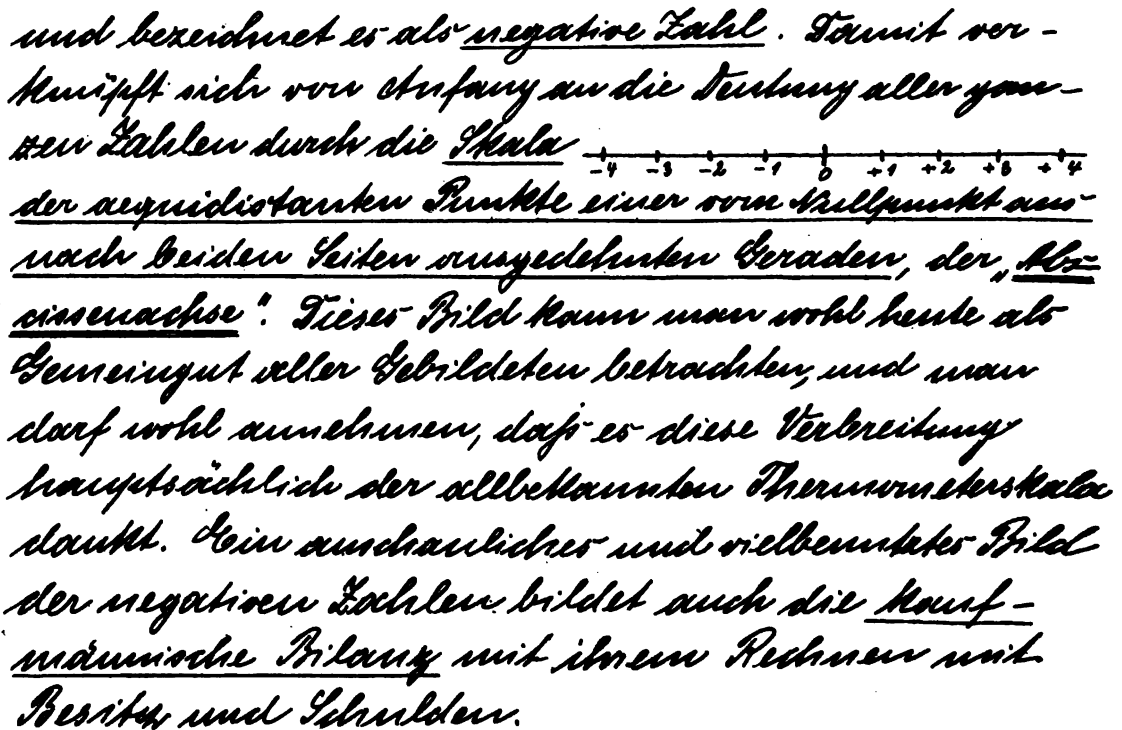 und bezeichnet es als negative Zahl. Damit ver-
knüpft sich von Anfang an die Deutung aller gan-
zen Zahlen durch die Skala -4 -3 -2 -1 0 +1 +2 +3 +4
der aequidistanten Punkte einer vom Nullpunkt aus
nach beiden Seiten ausgedehnten Geraden, der „Abs-
cissenachse“. Dieses Bild kann man wohl heute als
Gemeingut aller Gebildeten betrachten, und man
darf wohl annehmen, daß es diese Verbreitung
hauptsächlich der allbekannten Thermometerskala
dankt. Ein anschauliches und vielbenutztes Bild
der negativen Zahlen bildet auch die kauf-
männische Bilanz mit ihrem Rechnen mit
Besitz und Schulden.